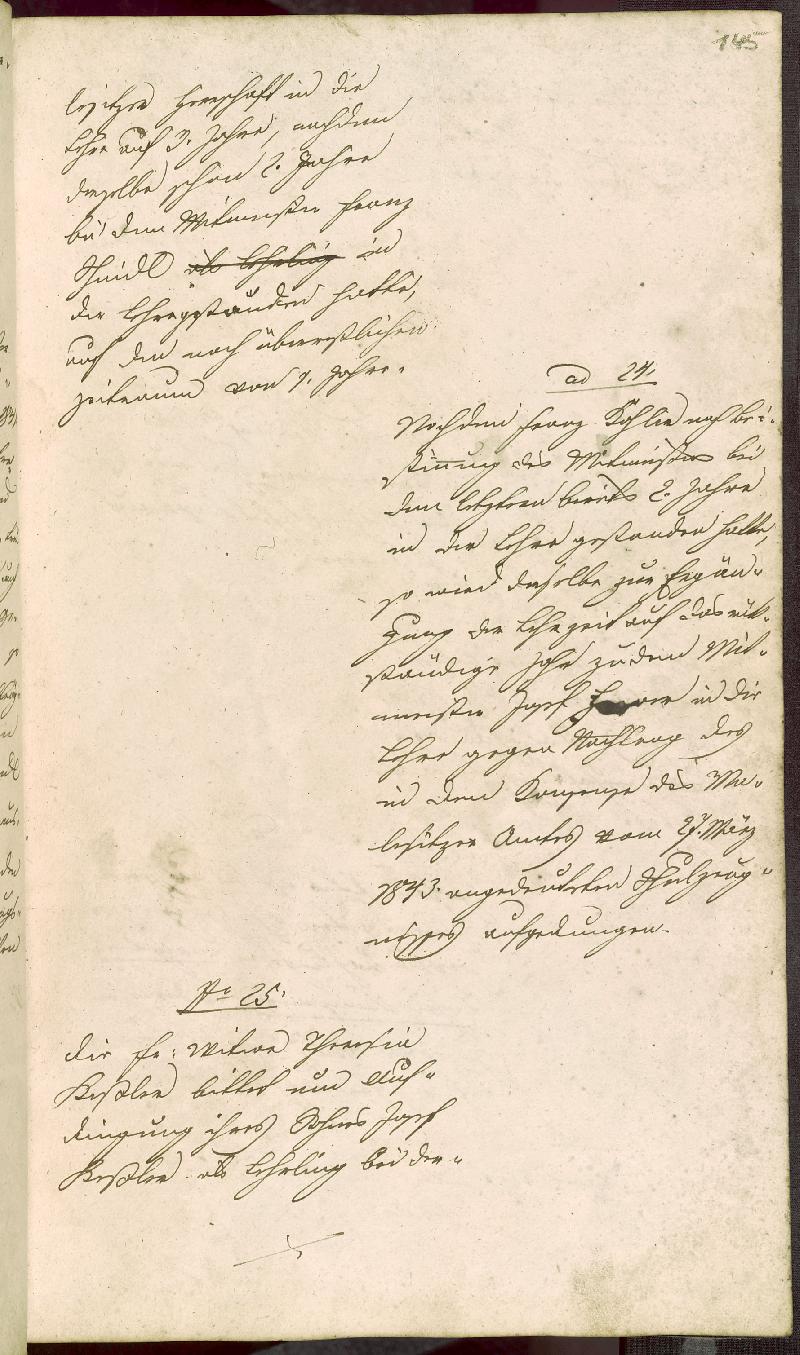 145
lesitzer Herrschaft in die
Lehre auf 3. Jahre, nachdem
derselbe schon 2. Jahre
bei dem Mitmeister Franz
Schmidt als Lehrling in
der Lehre gestanden hatte,
auf den noch überrestlichen
Zeitraum von 1. Jahre.
ad 24.
Nachdem Franz Kohler nach Bei-
stimmung des Mitmeisters bei
dem letztern bereits 2. Jahre
in der Lehre gestanden hatte,
so wird derselbe zur Ergän-
zung der Lehrzeit auf das rük-
ständige Jahr zu dem Mit-
meister Josef in die
Lehre gegen Nachtrag des
in dem Konsense des Ma-
lesitzer Amtes vom 27. März
1843. angedeuteten Schulzeug-
nisses aufgedungen.
No 25.
Die Fr: Witwe Theresia
Kessler bittet um Auf-
dingung ihres Sohnes Josef
Kessler als Lehrling bei der-